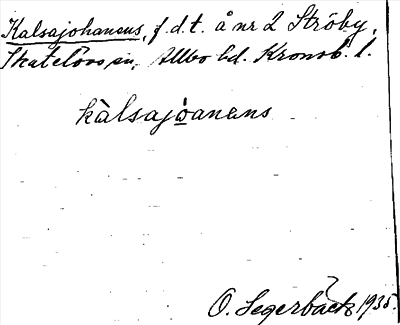 Kalsajohanens, f.d.t. å nr 2 Ströby,
Skatelövs sn, Allbo hd. Kronob. l.
kàlsajωanens
O. Segerbäck 1935.